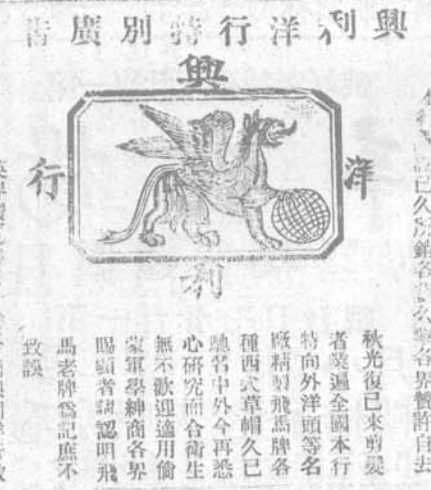 興利洋行特別廣告
興利洋行
秋光復已來剪髮
者業遍全國本行
特向外洋頭等名
廠精製飛馬牌各
種西式草帽久已
馳名中外今再悉
心研究而合衛生
無不歡迎適用倘
蒙軍學紳商各界
賜顧者請認明飛
馬老牌爲記庶不
致誤